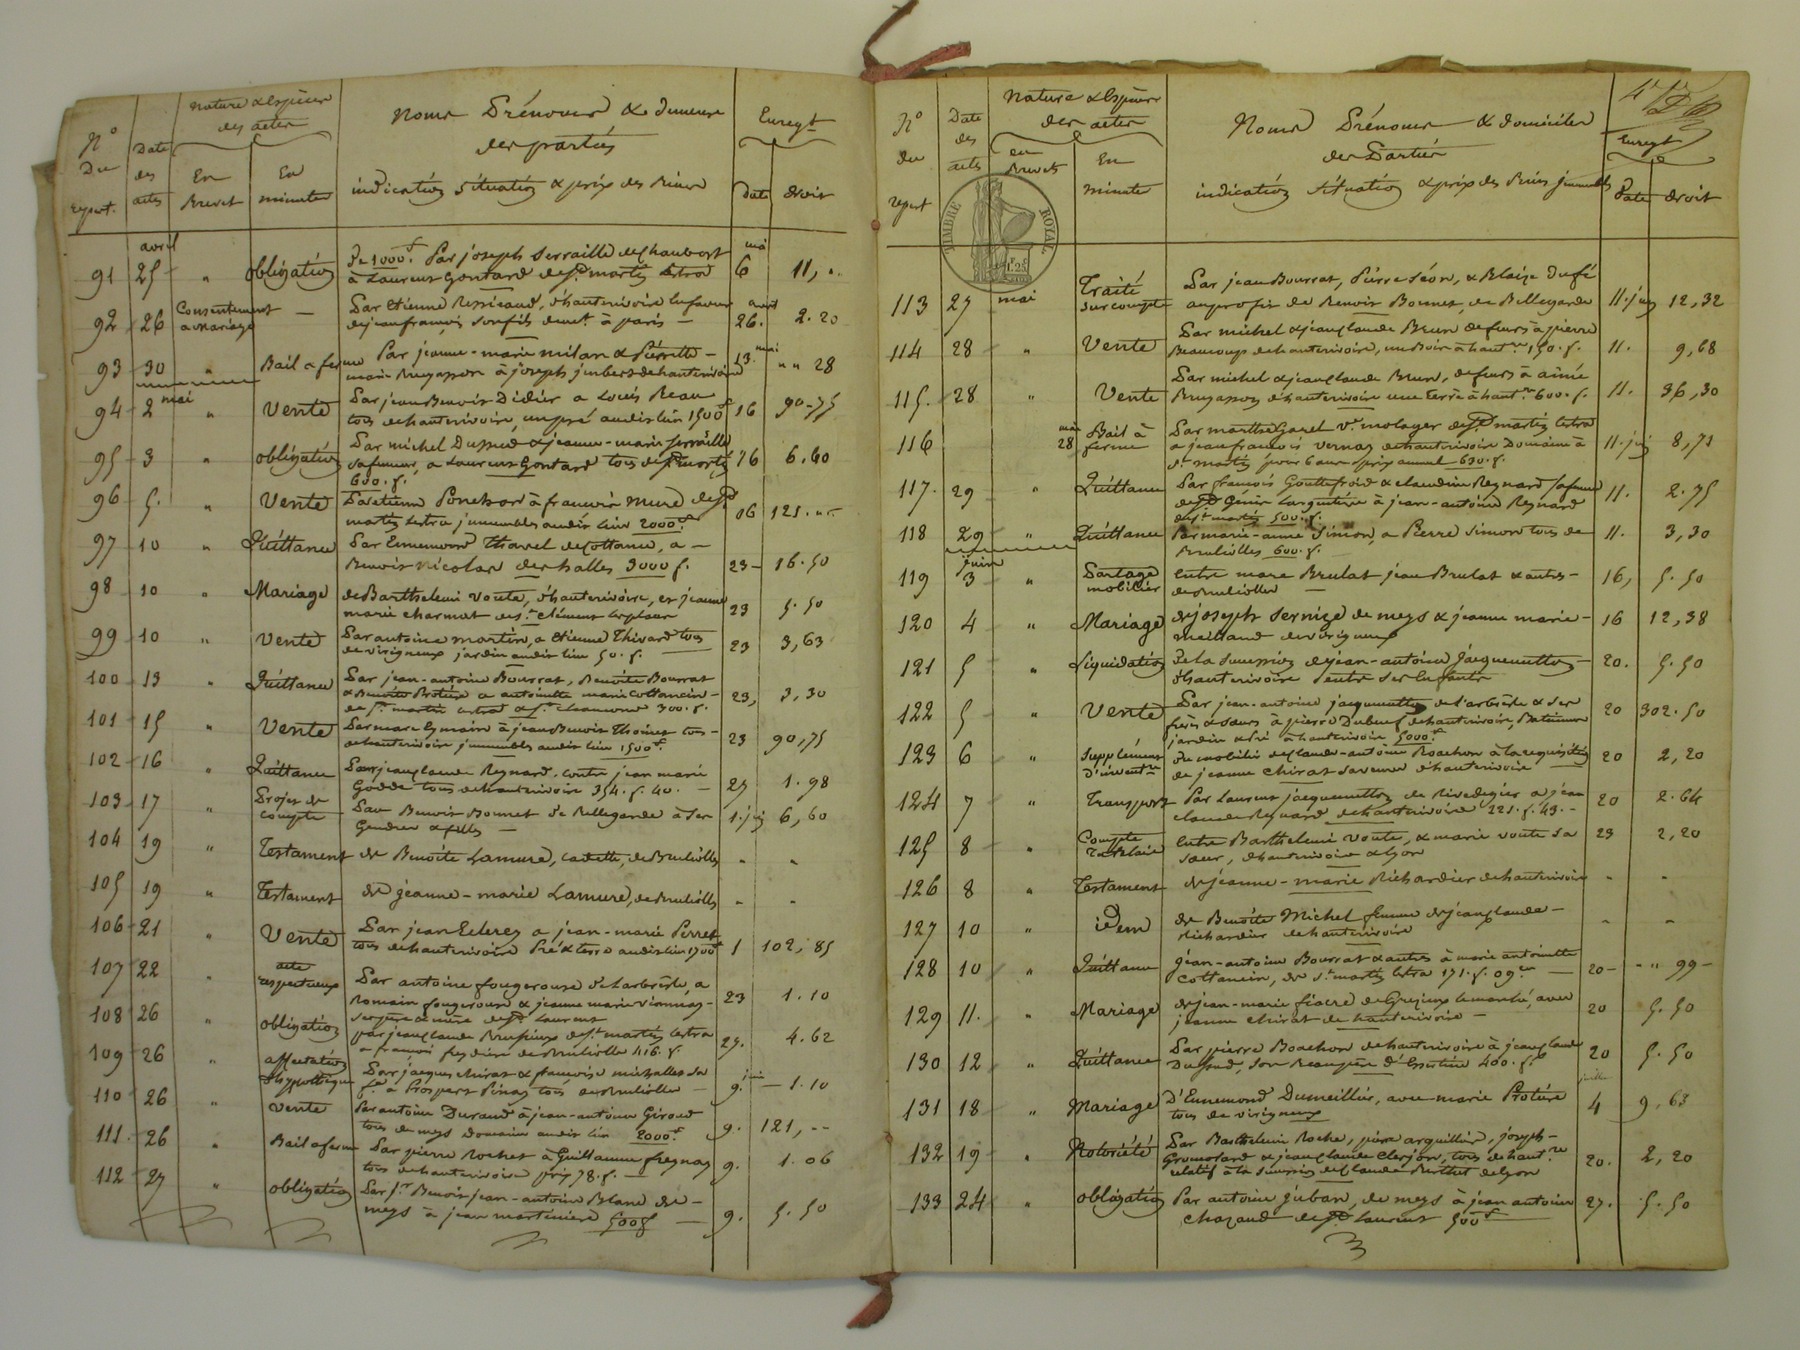 N° Du repert. Date des actes nature & Espèces des actes En Brevet En minutes
Noms Prénoms & demeure des parties
indication situation & prix des Biens
Enregt Date droit
avril mai
91 25 " obligation De 1000 f. Par joseph Serraille de
à Laurent Gontard de St martin Lestra 6 11, "
92 26 Consentement a mariage — Par Etienne d'hauterivoire En faveur
de jean françois son fils demt à paris — avril 26. 2. 20
93 30 " Bail a ferme Par jeanne-marie milan & Pierrette —
marie Bruyasson à joseph jmbert de hauterivoire mai 13 " " 28
mai
94 2 " Vente Par jean Benoit Didier a Louis Beau
tous de hauterivoire, un pré audit lieu 1500 f 16 90-75
95 3 " obligation Par michel Dussud & jeanne-marie Serraille
sa femme, a Laurent Gontard tous de St martin 16 6. 60
600. f.
96 5. " Vente Par etienne Ponchon à françois mure de St
martin Lestra jmmeubles audit lieu 2000 f 16 121. "
97 10 " Quittance Par Ennemond Thavel de Cottance, a —
Benoit nicolas des halles 3000 f. 23 — 16. 50
98 10 " Mariage de Barthelemi Voute, d'hauterivoire, et jeanne
marie charmat de St Clément les places 23 5. 50
99 10 " Vente Par antoine martin, a etienne Thivard tous
de virigneux jardin audit lieu 50. f. 23 3, 63
100 13 " Quittance Par jean-antoine Bourrat, Benoite Bourrat
& Benoite Protière a antoinette marie Cottancin —
de St martin Lestra & St 300. f. 23, 3, 30
101 15 " Vente Par marc à jean Benoit Thoinet tous —
de hauterivoire jmmeubles audit lieu 1500 f. 23 90, 75
102 16 " Quittance Par jean claude Reynard. contre jean marie
Godde tous de hauterivoire 354. f. 40. — 27 1. 98
103 17 " Projet de compte Par Benoit Bonnet de Bellegarde à Ses
Gendres & filles — 1. jin 6, 60
104 19 " Testament de Benoite Lamure, cadette, de Brullioles " "
105 19 " Testament de jeanne-marie Lamure, de Brullioles " "
106 21 " Vente Par jean Eclerey a jean-marie Perret
tous de hauterivoire Pré & terre audit lieu 1700 f 1 102, 85
107 22 " acte respectueux Par antoine fougerouse de Larbresle, a
Romain fougerouse & jeanne marie vionnay —
ses père & mère de St Laurent 23 1. 10
108 26 " obligation par jean claude de St martin Lestra
a françois de Brulliolle 416. f. 27. 4. 62
109 26 " affectation d'hypothèque Par jacques chirat & françoise michalles sa
fe a Prospert Pinay tous de Brulliolles — jin 9. — 1. 10
110 26 " Vente Par antoine Durand à jean-antoine Giroud
tous de meys Domaine audit lieu 2000 f. 9. 121, "
111. 26 " Bail a ferme Par pierre Rochet à Guillaume fregnay
tous de hauterivoire prix 78. f. — 9. 1. 06
112 27 " obligation Par Sr Benoit jean-antoine Blanc de —
meys à jean martinière 500 f — 9. 5. 50
4e
N° du repert Date des actes Nature & Espèces des actes en Brevets En minutes
Noms Prénoms & domiciles des Parties
indication situation & prix des Biens jmmeubles
Enregt Date droit
TIMBRE ROYAL
1 F. 25
113 27 mai Traité sur compte Par jean Bourrat, Pierre Séon, & Blaize Dufé
au profit de Benoit Bonnet, de Bellegarde 11. jin 12, 32
114 28 " Vente Par michel & jean claude Brun de feurs à pierre
Beaucoup de hauterivoire, un Bois à hautre 150. f. 11. 9, 68
115. 28 " Vente Par michel & jean claude Brun, de feurs à aimé
Bruyasson d'hauterivoire une terre à hautre 600. f. 11. 36, 30
116 mai 28 Bail à ferme Par marthe Garel Ve molager de St martin Lestra
a jean françois vernay de hauterivoire Domaine à
St martin pour 6 ans prix annuel 630. f. 11. jin 8, 71
117. 29 " Quittance Par françois Gouttefroid & claudine Reynard sa femme
de St Genis Largentière à jean-antoine Reynard
de St martin 500. f. 11. 2. 75
118 29 " Quittance Par marie-anne Simon, a Pierre Simon tous de
Brullioles 600. f. — 11. 3, 30
juin
119 3 " Partage mobilier Entre marc Brulat jean Brulat & autres —
de Brullioles — 16, 5. 50
120 4 " Mariage de joseph Sernize de meys & jeanne marie —
meilland de virigneux 16 12, 38
121 5 " Liquidation De la succession de jean-antoine jacquemetton —
d'hauterivoire entre ses Enfants 20. 5. 50
122 5 " Vente Par jean-antoine jacquemetton, de l'arbresle & ses
frères & sœurs à pierre Dubeuf de hauterivoire, Batiments
jardin & Pré à hauterivoire 5000 f. 20 302. 50
123 6 " Supplément d'inventre Du mobilier de claude-antoine Boachon à la requisition
de jeanne chirat sa veuve d'hauterivoire 20 2, 20
124 7 " Transport Par Laurent jacquemetton de Rivedegier a jean
claude Reynard de hauterivoire 221. f. 43. — 20 2. 64
125 8 " Compte Tutelaire Entre Barthelemi Voute, & marie voute sa
sœur, d'hauterivoire & Lyon 23 2, 20
126 8 " Testament de jeanne-marie Richardier de hauterivoire " "
127 10 " idem de Benoite Michel femme de jean claude —
Richardier de hauterivoire " "
128 10 " Quittance jean-antoine Bourrat & autres à marie antoinette
Cottancin, de St martin Lestra 171. f. 09. cen — 20 — " " 99 —
129 11. " Mariage de jean-marie fiacre de Grezieux le marché, avec
jeanne chirat de hauterivoire — 20 5. 50
130 12 " Quittance Par pierre Boachon de hauterivoire à jean claude
Dussud, son Beaupère d' 400. f. 20 5. 50
juillet
131 18 " Mariage d'Ennemond Dumeillier, avec marie Protière
tous de virigneux 4 9, 63
132 19 " Notoriété Par Barthelemi Roche, pierre arquillière, joseph —
Gromolard & jean claude Clerjon, tous de hautre
relatif à la succession de Claude Berthet de Lyon 20. 2, 20
133 24 " obligation Par antoine juban, de meys à jean antoine
Chazaud de St Laurent 500 f 27. 5. 50